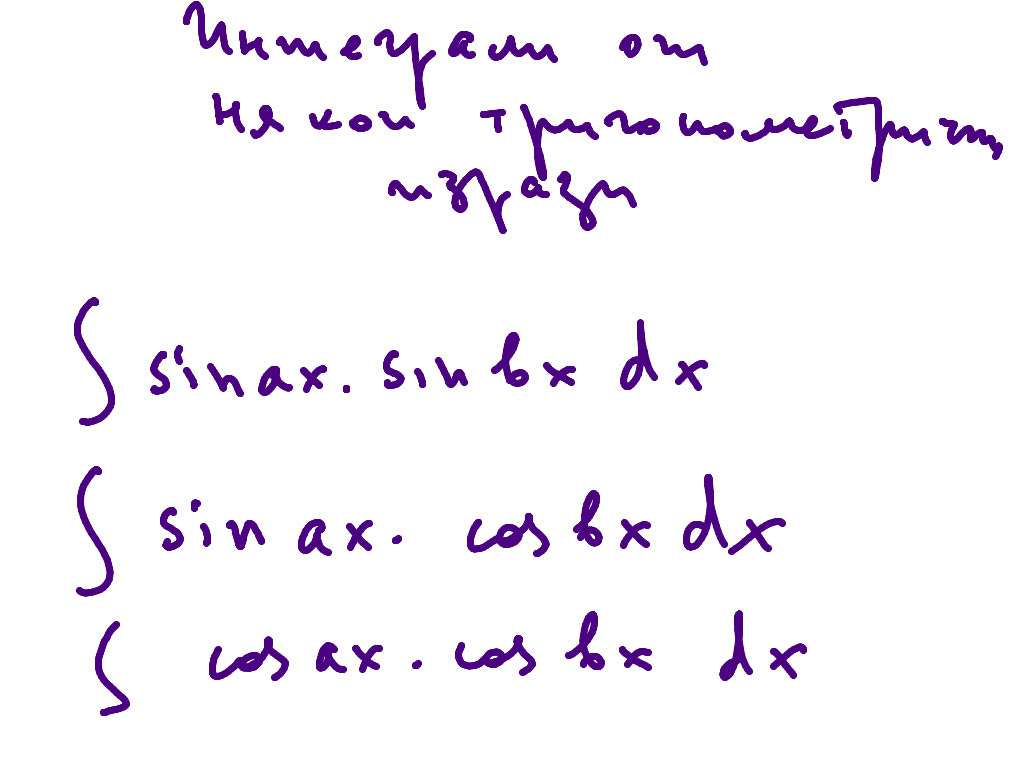 Интеграли от
някои тригонометрични
изрази
∫ sin ax . sin bx dx
∫ sin ax . cos bx dx
∫ cos ax . cos bx dx